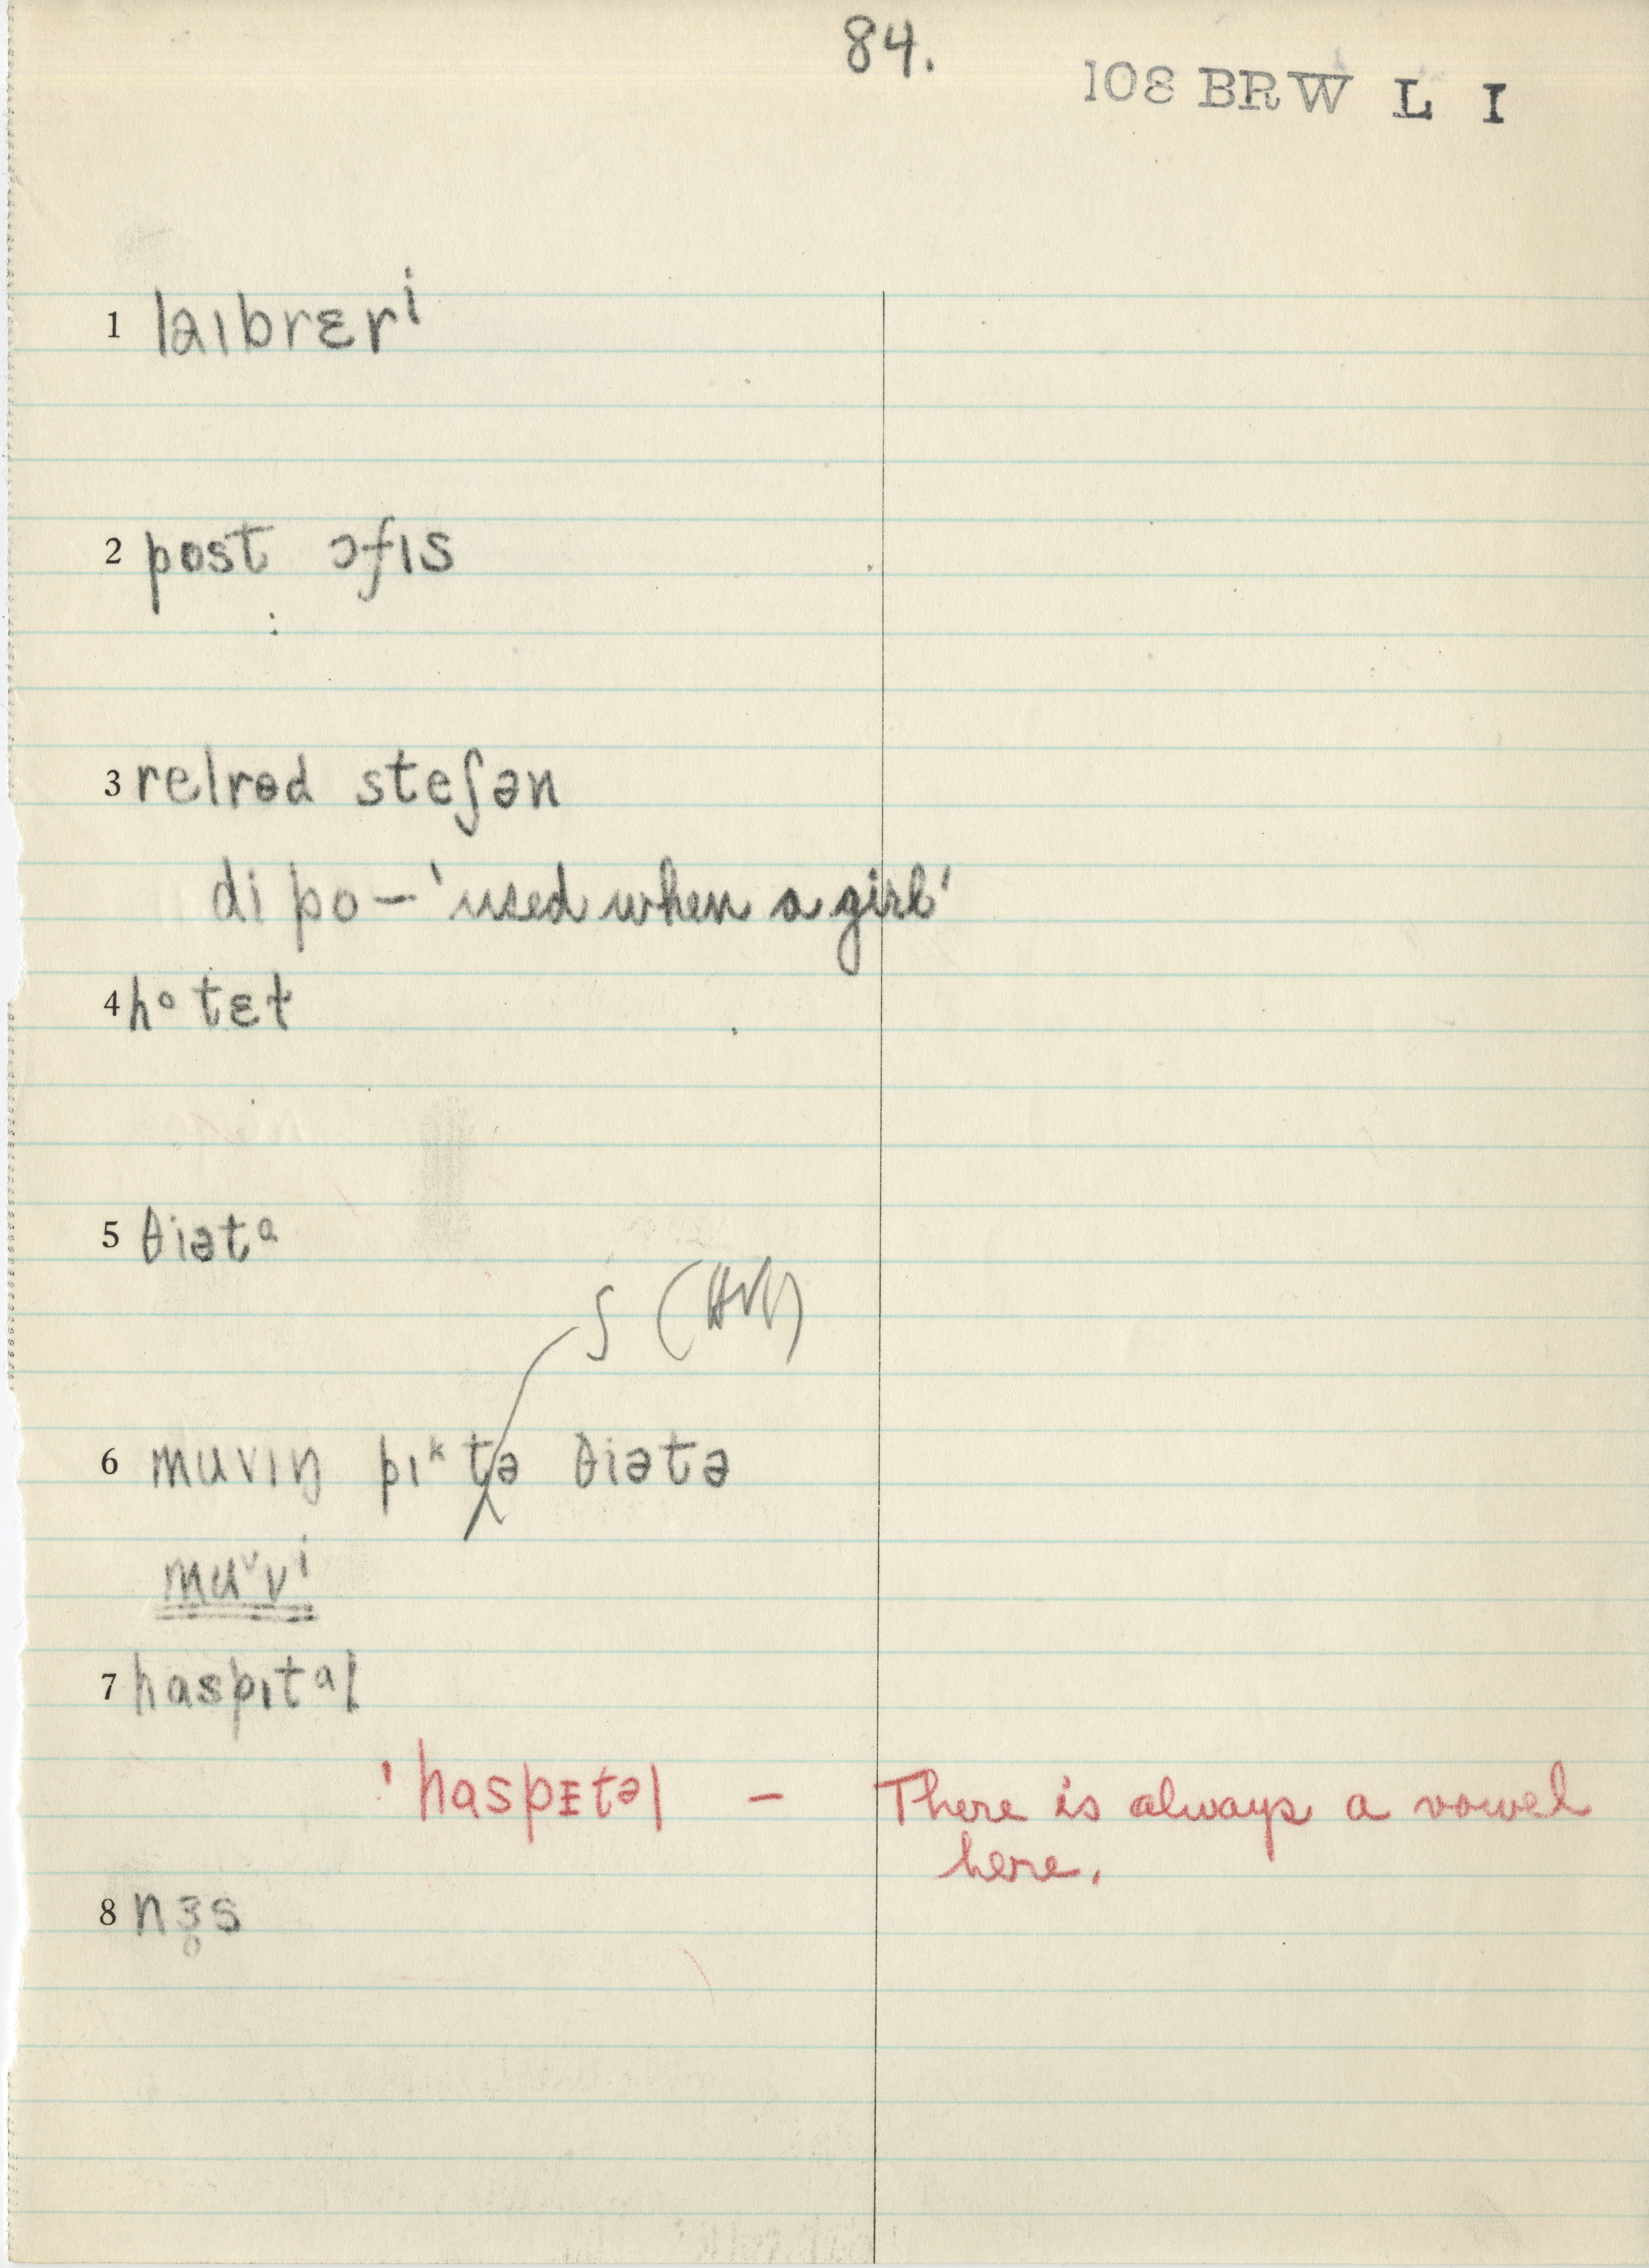 84.
108 BRW L I
1 laɪbrɛrⁱ
2 post ɔfɪs
3 relrɵd steʃən
di po – 'used when a girl'
4 hᵒtɛɫ
5 θiətᵅ
ʃ
6 muvɪŋ pɪᵏtə θiətə
muᵛvⁱ
7 haspɪtᵊl
'haspᵻtəl – There is always a vowel
here.
8 nɜ̥s